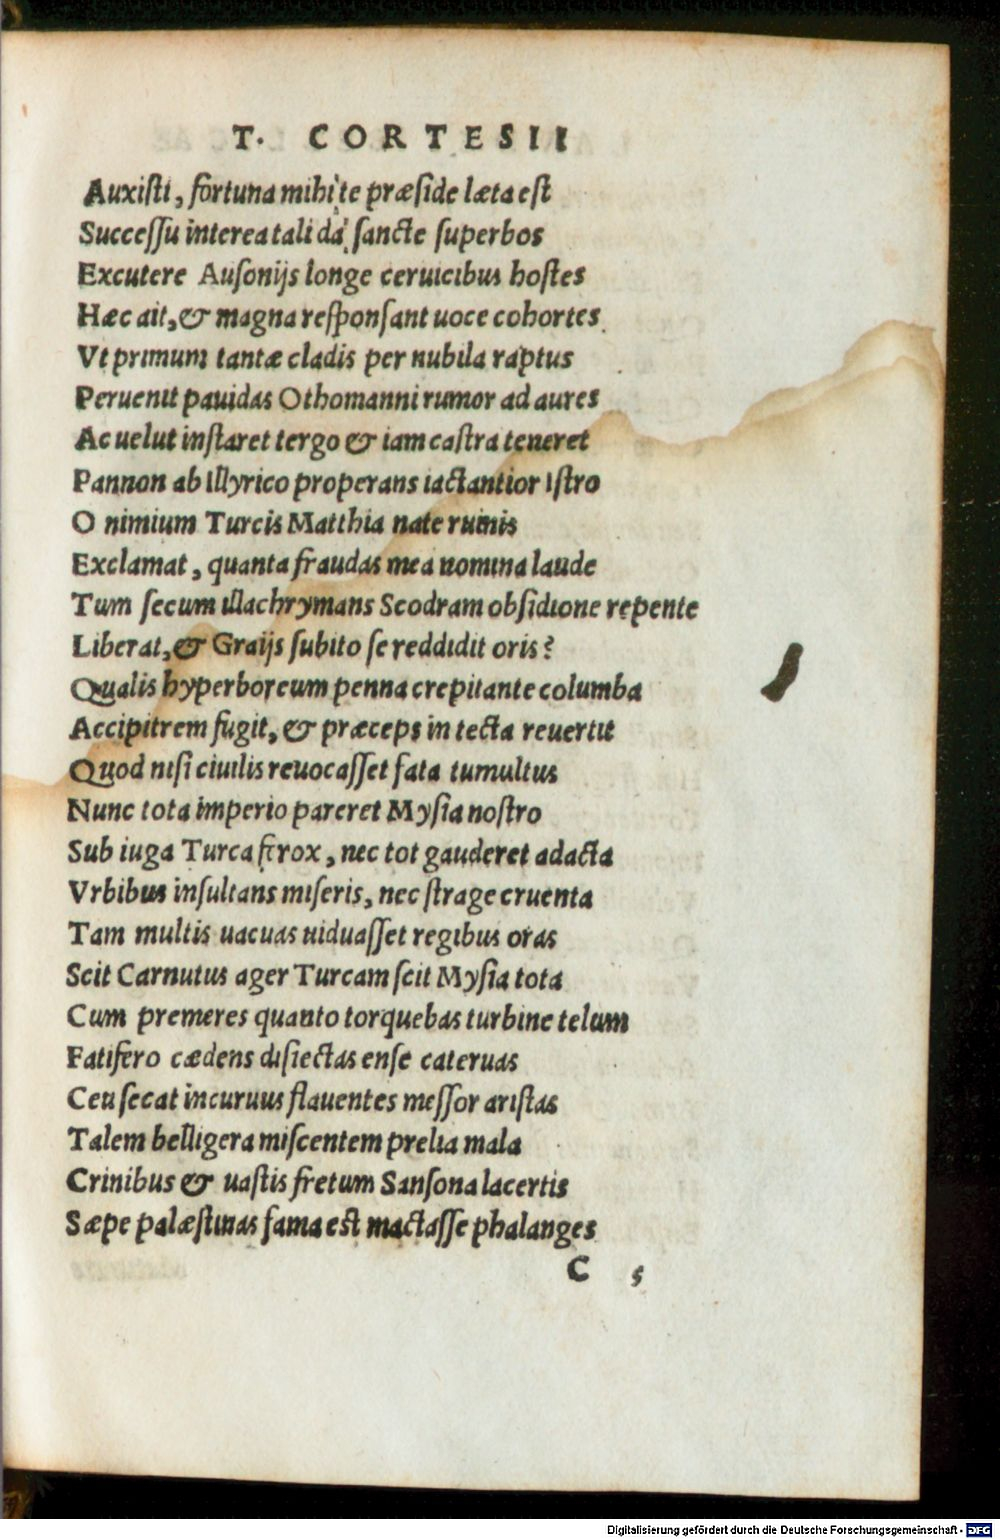 T. CORTESII
Auxisti, fortuna mihi te præside læta est
Successu interea tali da sancte superbos
Excutere Ausonijs longe ceruicibus hostes
Hæc ait, & magna responsant uoce cohortes
Vt primum tantæ cladis per nubila raptus
Peruenit pauidas Othomanni rumor ad aures
Ac uelut instaret tergo & iam castra teneret
Pannon ab Illyrico properans iactantior Istro
O nimium Turcis Matthia nate ruinis
Exclamat, quanta fraudas mea nomina laude
Tum secum illachrymans Scodram obsidione repente
Liberat, & Graijs subito se reddidit oris?
Qualis hyperboreum penna crepitante columba
Accipitrem fugit, & præceps in tecta reuertit
Quod nisi ciuilis reuocasset fata tumultus
Nunc tota imperio pareret Mysia nostro
Sub iuga Turca ferox, nec tot gauderet adacta
Vrbibus insultans miseris, nec strage cruenta
Tam multis uacuas uiduasset regibus oras
Scit Carnutus ager Turcam scit Mysia tota
Cum premeres quanto torquebas turbine telum
Fatifero cædens disiectas ense cateruas
Ceu secat incuruus flauentes messor aristas
Talem belligera miscentem prelia mala
Crinibus & uastis fretum Sansona lacertis
Sæpe palæstinas fama est mactasse phalanges
C 5
Digitalisierung gefördert durch die Deutsche Forschungsgemeinschaft - DFG